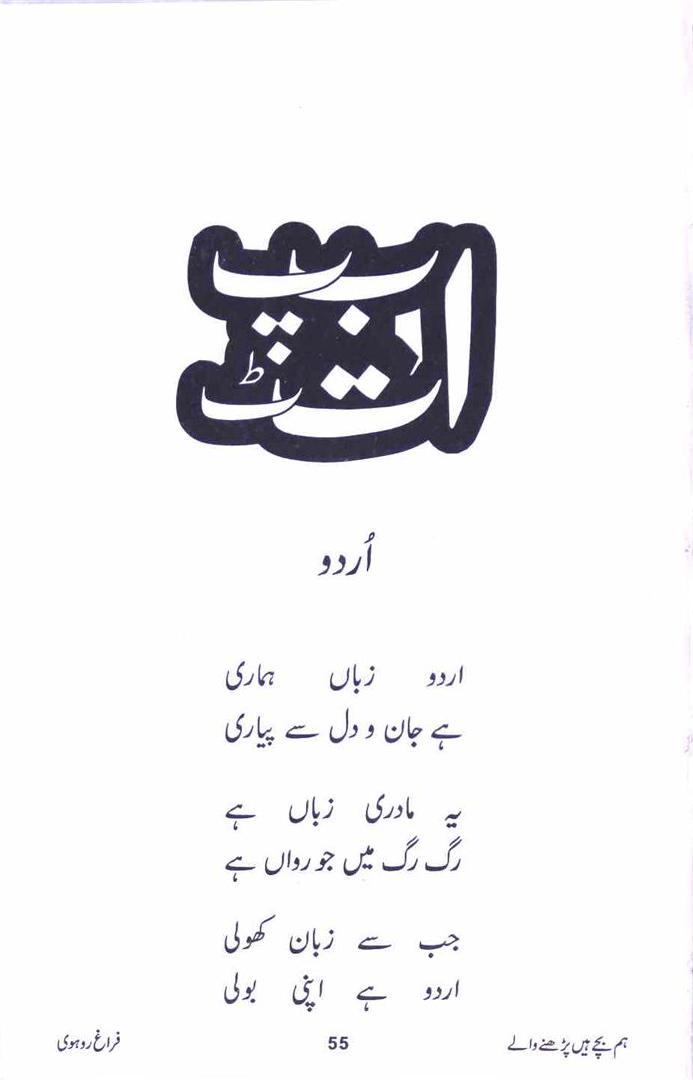 ا ب پ
ت ٹ
اُردو
اردو زباں ہماری
ہے جان و دل سے پیاری
یہ مادری زباں ہے
رگ رگ میں جو رواں ہے
جب سے زبان کھولی
اردو ہے اپنی بولی
ہم بچے ہیں پڑھنے والے 55 فراغ روہوی